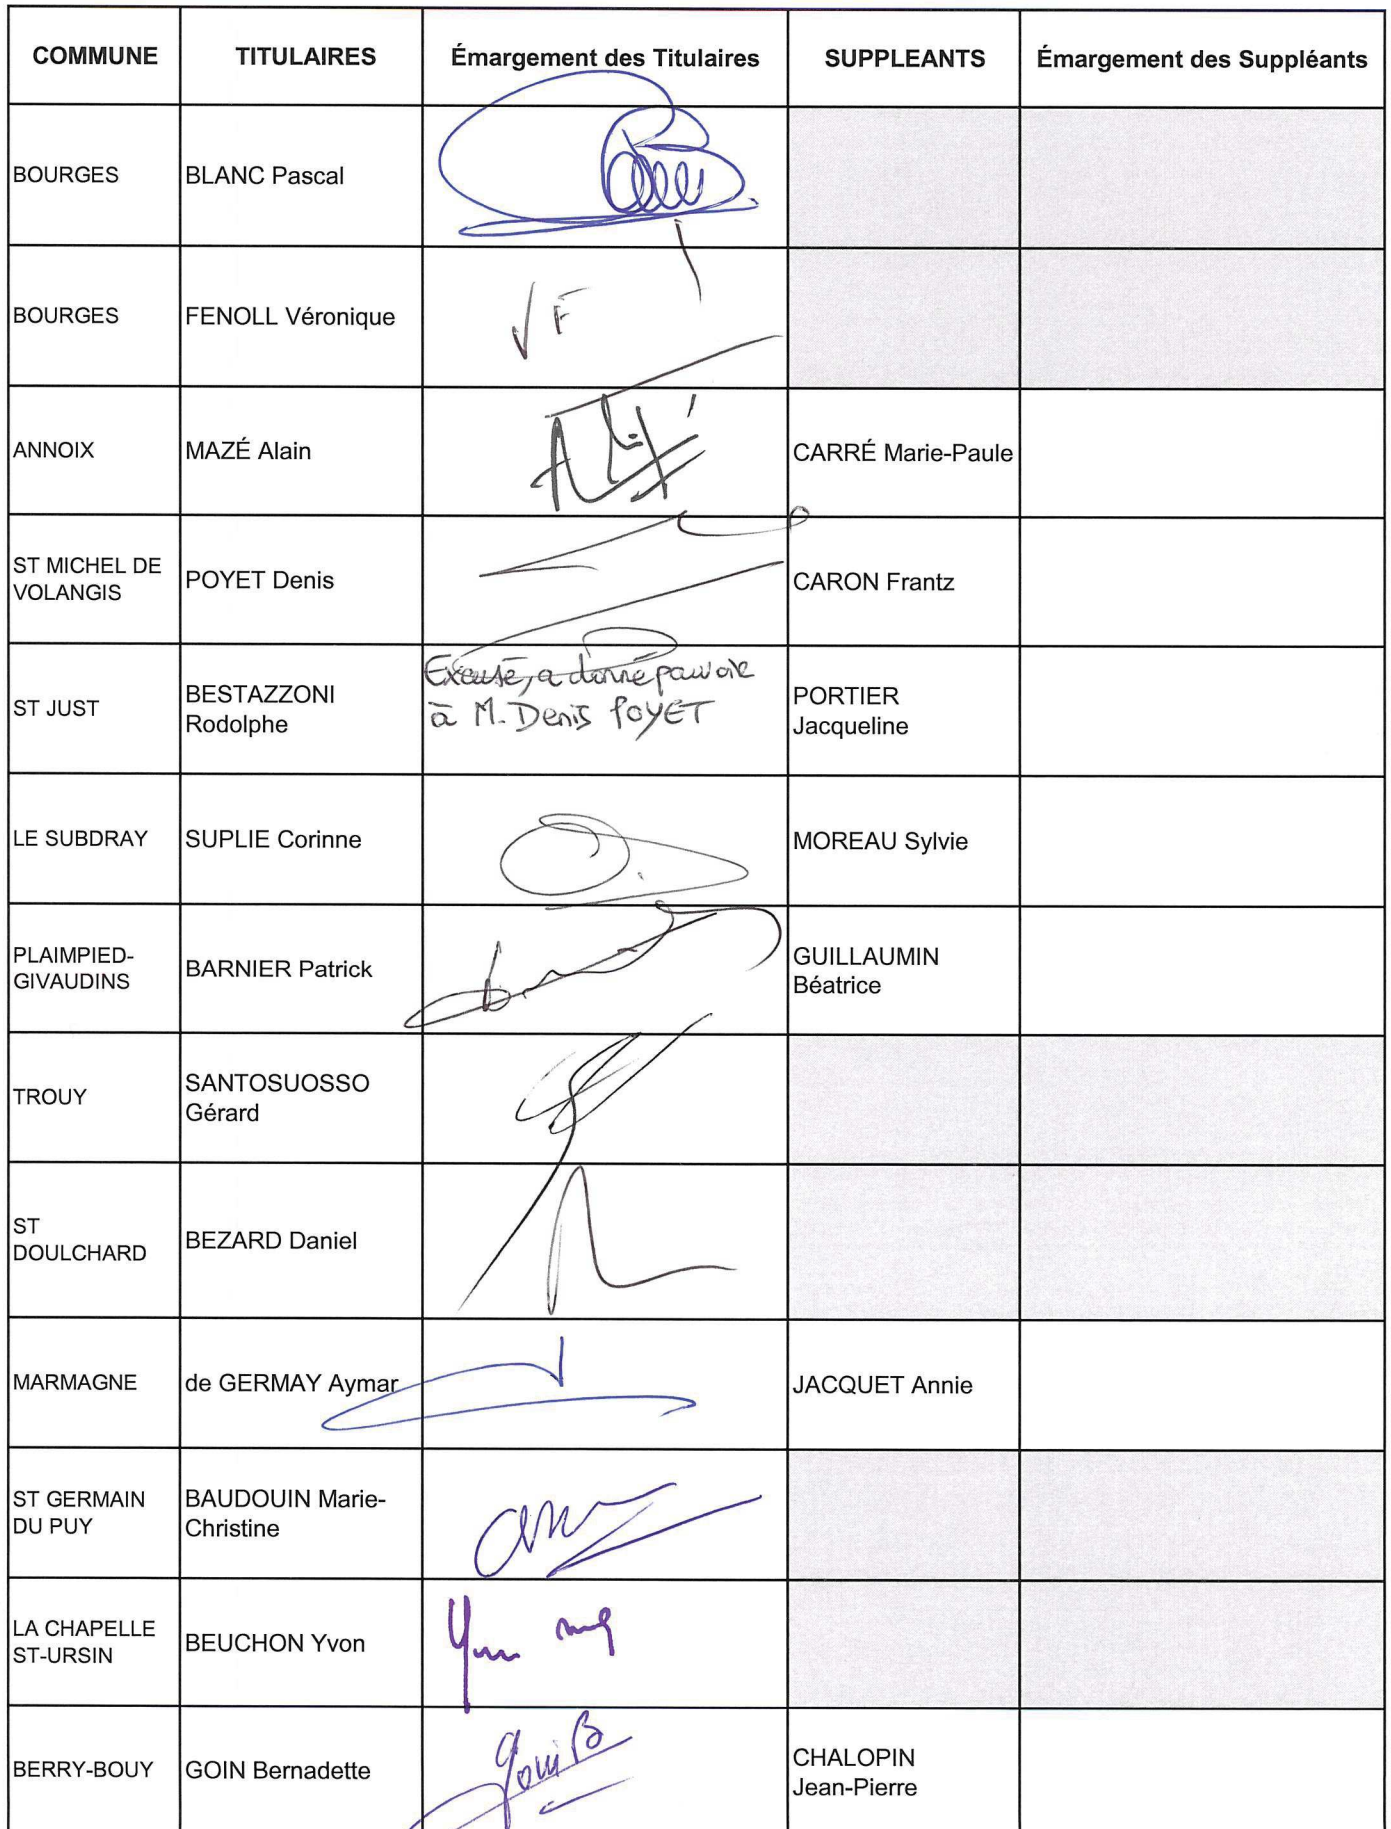 COMMUNE TITULAIRES Émargement des Titulaires SUPPLEANTS Émargement des Suppléants
BOURGES BLANC Pascal
BOURGES FENOLL Véronique VF
ANNOIX MAZÉ Alain CARRÉ Marie-Paule
ST MICHEL DE
VOLANGIS POYET Denis CARON Frantz
ST JUST BESTAZZONI
Rodolphe
Excusé, a donné pouvoir
à M. Denis POYET
PORTIER
Jacqueline
LE SUBDRAY SUPLIE Corinne MOREAU Sylvie
PLAIMPIED-
GIVAUDINS BARNIER Patrick GUILLAUMIN
Béatrice
TROUY SANTOSUOSSO
Gérard
ST
DOULCHARD BEZARD Daniel
MARMAGNE de GERMAY Aymar JACQUET Annie
ST GERMAIN
DU PUY BAUDOUIN Marie-
Christine
LA CHAPELLE
ST-URSIN BEUCHON Yvon
BERRY-BOUY GOIN Bernadette CHALOPIN
Jean-Pierre